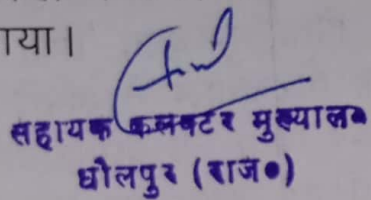 ाया।
सहायक कलक्टर मुख्याल०
धौलपुर (राज०)